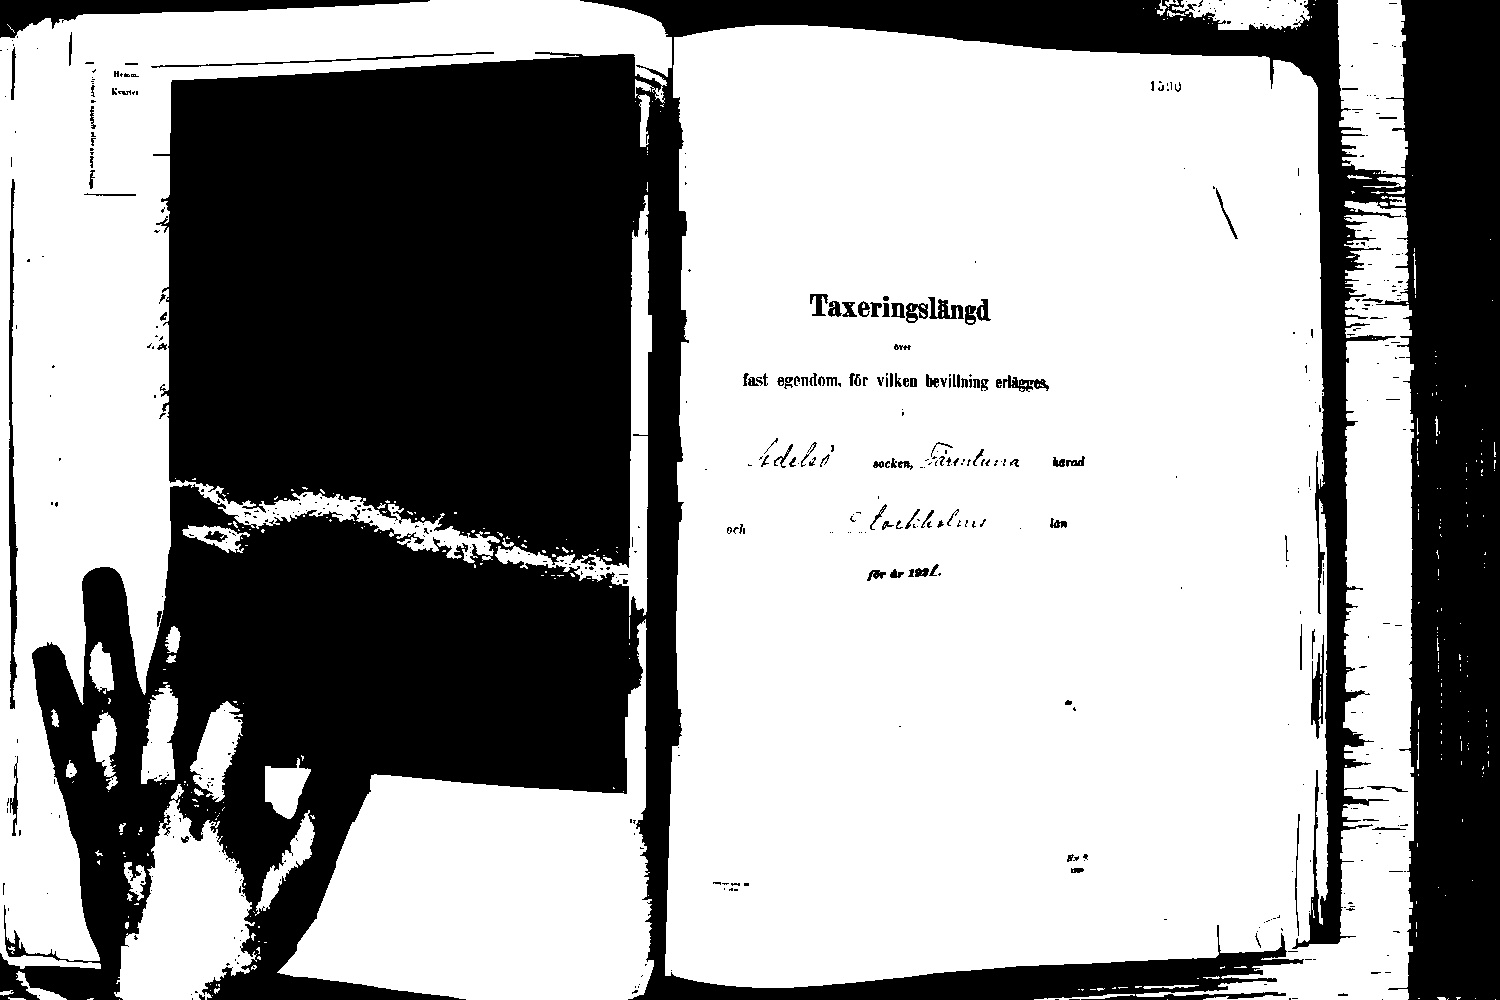 Hemm.
Kvarter
Taxeringslängd
över
fast egendom, för vilken bevillning erlägges,
i
Adelsö socken, Färentuna härad
och Stockholms län
för år 1921.
N:r 9.